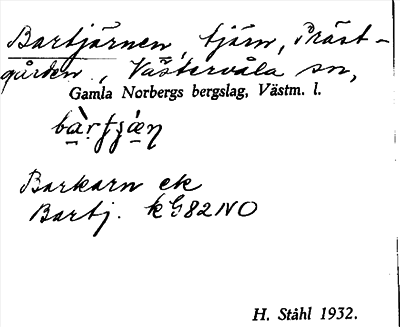 Bartjärnen, tjärn, Präst-
gården, Västervåla sn,
Gamla Norbergs bergslag, Västm. l.
Barkarn ek
Bartj. kG82NO
H. Ståhl 1932.